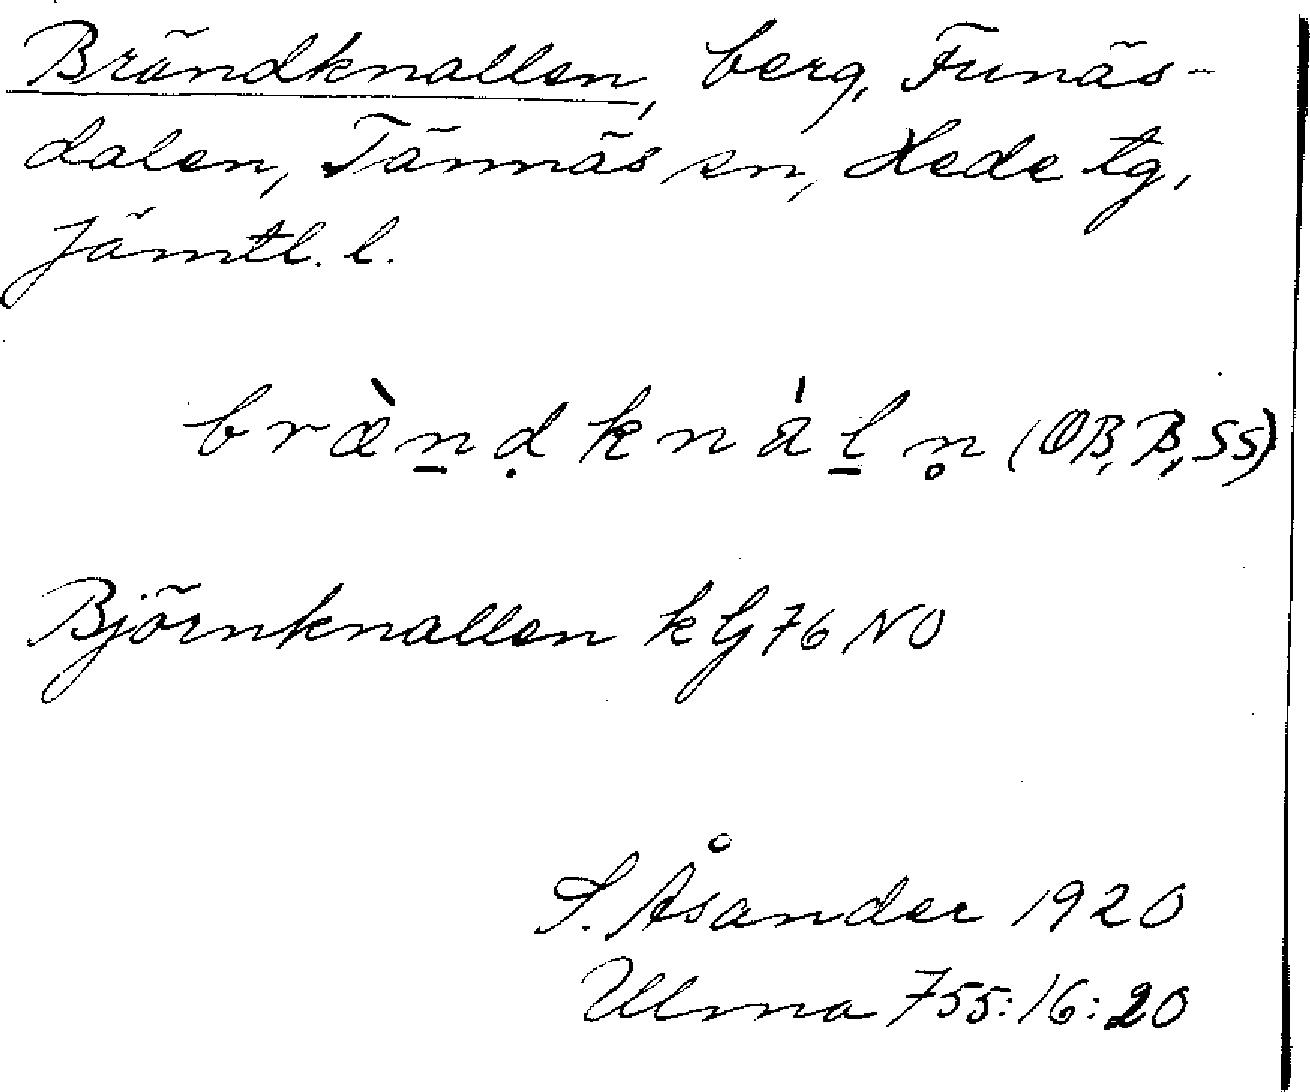 Brändknallen, berg, Funäs-
dalen, Tännäs sn, Hede tg,
Jämtl. l.
bræ̀n̲ḍknál̲n̥ (OB, B, SS)
Björnknallen k G 76 NO
S. Åsander 1920
Ulma 755:16:20